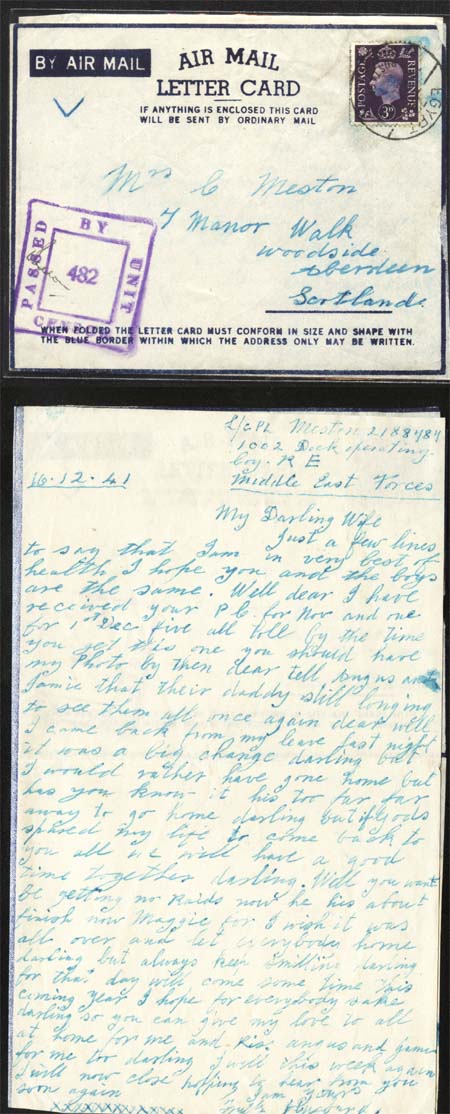 BY AIR MAIL
AIR MAIL
LETTER CARD
IF ANYTHING IS ENCLOSED THIS CARD
WILL BE SENT BY ORDINARY MAIL
POSTAGE REVENUE
3D
EGYPT
Mrs C Meston
7 Manor Walk
Woodside
Aberdeen
Scotland
PASSED BY UNIT
482
WHEN FOLDED THE LETTER CARD MUST CONFORM IN SIZE AND SHAPE WITH
THE BLUE BORDER WITHIN WHICH THE ADDRESS ONLY MAY BE WRITTEN.
L/CPL Meston 2188484
1002 Dock operating
Coy. R E
16.12.41 Middle East Forces
My Darling Wife
Just a few lines
to say that I am in very best of
health I hope you and the boys
are the same. Well dear I have
received your P C for Nov and one
for 1st Dec five all toll by the time
you get this one you should have
my Photo by then dear tell Angus and
Jamie that their daddy still longing
to see them all once again dear well
I came back from my leave last night
it was a big change darling but
I would rather have gone home but
has you know it his too far far
away to go home darling but if Gods
spared my life to come back to
you all we will have a good
time together darling. Well you wont
be getting no Raids now he his about
finish now Maggie for I wish it was
all over and let everybody home
darling but always keep smilling darling
for that day will come some time this
coming year I hope for everybody sake
darling so you can give my love to all
at home for me and kiss angus and jamie
for me too darling I will this week again
I will now close hopping to hear from you
soon again I am yours